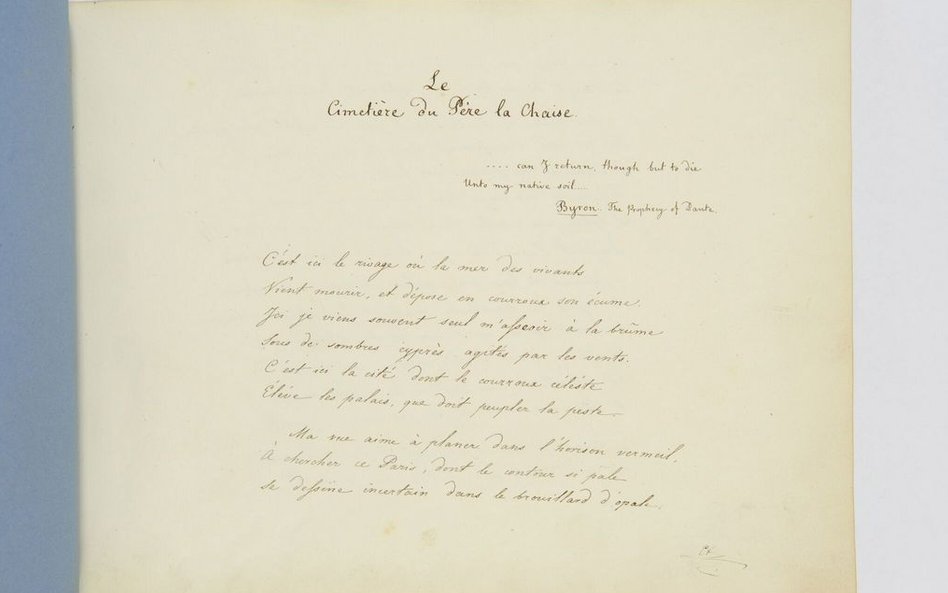 Le
Cimetière du Père la Chaise.
.... can I return, though but to die
Unto my native soil....
Byron. The Prophecy of Dante.
C'est ici le rivage où la mer des vivants
Vient mourir, et dépose en courroux son écume.
Ici je viens souvent seul m'asseoir à la brûme
Sous de sombres cyprès agités par les vents.
C'est ici la cité dont le courroux céléste
Élève les palais, que doit peupler la peste.
Ma vue aime à planer dans l'horison vermeil,
A chercher ce Paris, dont le contour si pale
se dessine incertain dans le brouillard d'opale.